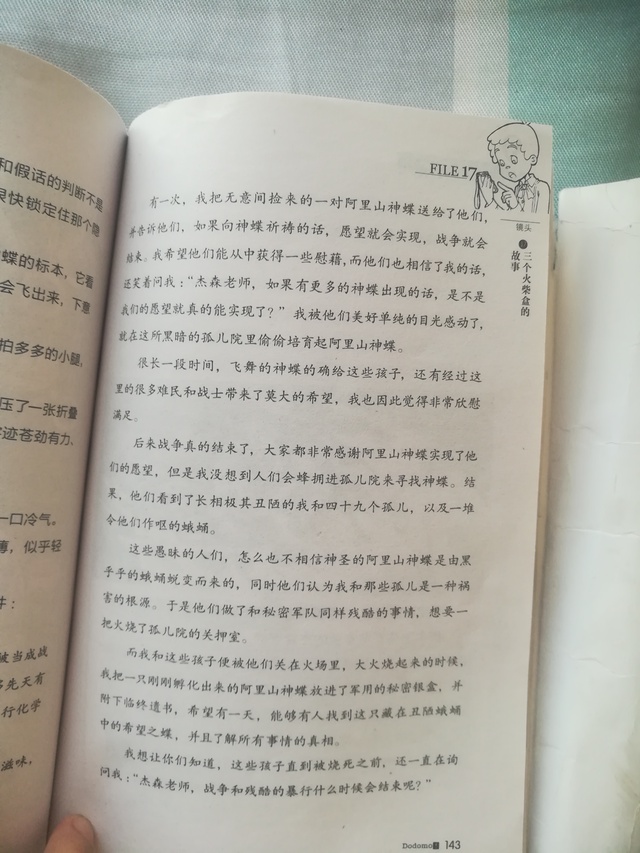 和假话的判断不是
很快锁定住那个隐
蝶的标本，它看
会飞出来，下意
拍多多的小腿，
压了一张折叠
字迹苍劲有力、
一口冷气。
薄，似乎轻
件：
被当成战
多先天有
行化学
滋味，
FILE 17
镜头
三个火柴盒的
故事
有一次，我把无意间捡来的一对阿里山神蝶送给了他们，
并告诉他们，如果向神蝶祈祷的话，愿望就会实现，战争就会
结束。我希望他们能从中获得一些慰藉，而他们也相信了我的话，
还笑着问我：“杰森老师，如果有更多的神蝶出现的话，是不是
我们的愿望就真的能实现了？”我被他们美好单纯的目光感动了，
就在这所黑暗的孤儿院里偷偷培育起阿里山神蝶。
很长一段时间，飞舞的神蝶的确给这些孩子，还有经过这
里的很多难民和战士带来了莫大的希望，我也因此觉得非常欣慰
满足。
后来战争真的结束了，大家都非常感谢阿里山神蝶实现了他
们的愿望，但是我没想到人们会蜂拥进孤儿院来寻找神蝶。结
果，他们看到了长相极其丑陋的我和四十九个孤儿，以及一堆
令他们作呕的蛾蛹。
这些愚昧的人们，怎么也不相信神圣的阿里山神蝶是由黑
乎乎的蛾蛹蜕变而来的，同时他们认为我和那些孤儿是一种祸
害的根源。于是他们做了和秘密军队同样残酷的事情，想要一
把火烧了孤儿院的关押室。
而我和这些孩子便被他们关在火场里，大火烧起来的时候，
我把一只刚刚孵化出来的阿里山神蝶放进了军用的秘密银盒，并
附下临终遗书，希望有一天，能够有人找到这只藏在丑陋蛾蛹
中的希望之蝶，并且了解所有事情的真相。
我想让你们知道，这些孩子直到被烧死之前，还一直在询
问我：“杰森老师，战争和残酷的暴行什么时候会结束呢？”
Dodomo 143